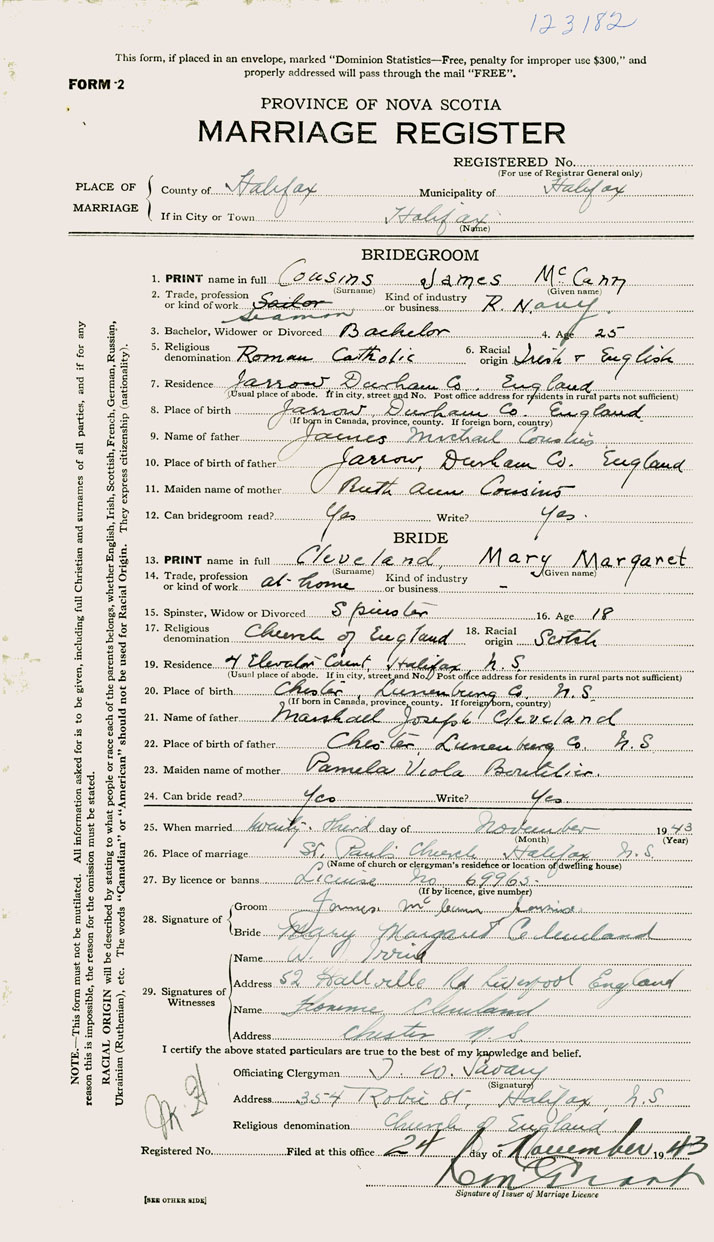 123182
This form, if placed in an envelope, marked "Dominion Statistics—Free, penalty for improper use $300," and
properly addressed will pass through the mail "FREE".
FORM 2
PROVINCE OF NOVA SCOTIA
MARRIAGE REGISTER
REGISTERED No.
(For use of Registrar General only)
PLACE OF MARRIAGE
County of Halifax Municipality of Halifax
If in City or Town Halifax
(Name)
BRIDEGROOM
1. PRINT name in full Cousins James McCann
(Surname) (Given name)
2. Trade, profession or kind of work Sailor Seaman Kind of industry or business R. Navy
3. Bachelor, Widower or Divorced Bachelor 4. Age 25
5. Religious denomination Roman Catholic 6. Racial origin Irish & English
7. Residence Jarrow Durham Co. England
(Usual place of abode. If in city, street and No. Post office address for residents in rural parts not sufficient)
8. Place of birth Jarrow Durham Co. England
(If born in Canada, province, county. If foreign born, country)
9. Name of father James Michael Cousins
10. Place of birth of father Jarrow, Durham Co. England
11. Maiden name of mother Ruth Ann Cousins
12. Can bridegroom read? Yes Write? Yes.
BRIDE
13. PRINT name in full Cleveland, Mary Margaret
(Surname) (Given name)
14. Trade, profession or kind of work at-home Kind of industry or business -
15. Spinster, Widow or Divorced Spinster 16. Age 18
17. Religious denomination Church of England 18. Racial origin Scotch
19. Residence 4 Elevator Court, Halifax, N.S.
(Usual place of abode. If in city, street and No. Post office address for residents in rural parts not sufficient)
20. Place of birth Chester, Lunenburg Co. N.S.
(If born in Canada, province, county. If foreign born, country)
21. Name of father Marshall Joseph Cleveland
22. Place of birth of father Chester Lunenburg Co. N.S
23. Maiden name of mother Pamela Viola Boutilier.
24. Can bride read? Yes Write? Yes.
25. When married twenty-third day of November 1943
(Month) (Year)
26. Place of marriage St. Paul's Church, Halifax N.S.
(Name of church or clergyman's residence or location of dwelling house)
27. By licence or banns License No 69965
(If by licence, give number)
28. Signature of
Groom James McCann Cousins
Bride Mary Margaret Cleveland
29. Signatures of Witnesses
Name W.
Address 52 Rd Liverpool England
Name Florence Cleveland
Address Chester N.S.
I certify the above stated particulars are true to the best of my knowledge and belief.
Officiating Clergyman T. W. Savary
(Signature)
Address 354 Robie St, Halifax, N.S
Religious denomination Church of England
Registered No. Filed at this office 24 day of November 1943
Grant
Signature of Issuer of Marriage Licence
[SEE OTHER SIDE]
NOTE.—This form must not be mutilated. All information asked for is to be given, including full Christian and surnames of all parties, and if for any
reason this is impossible, the reason for the omission must be stated.
RACIAL ORIGIN will be described by stating to what people or race each of the parents belongs, whether English, Irish, Scottish, French, German, Russian,
Ukrainian (Ruthenian), etc. The words "Canadian" or "American" should not be used for Racial Origin. They express citizenship (nationality).